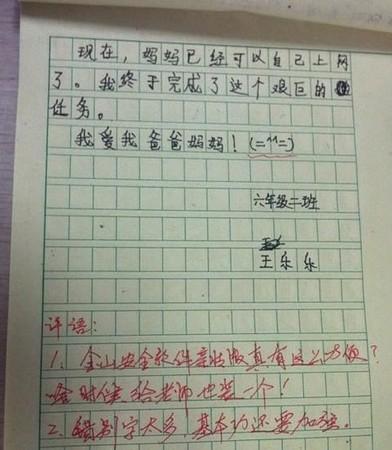 现在，妈妈已经可以自己上网
了。我终于完成了这个艰巨的
任务。
我爱我爸爸妈妈！(=^^=)
六年级二班
王乐乐
评语：
1、金山安全软件亲情版真有这么方便？
啥时候给老师也装一个！
2、错别字太多，基本功还要加强。